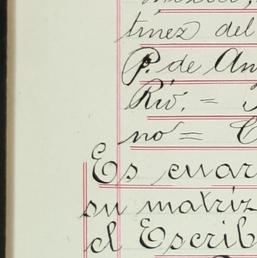 tinez del
P. de An
Riv. =
no =
Es cuar
su matriz
el Escrib